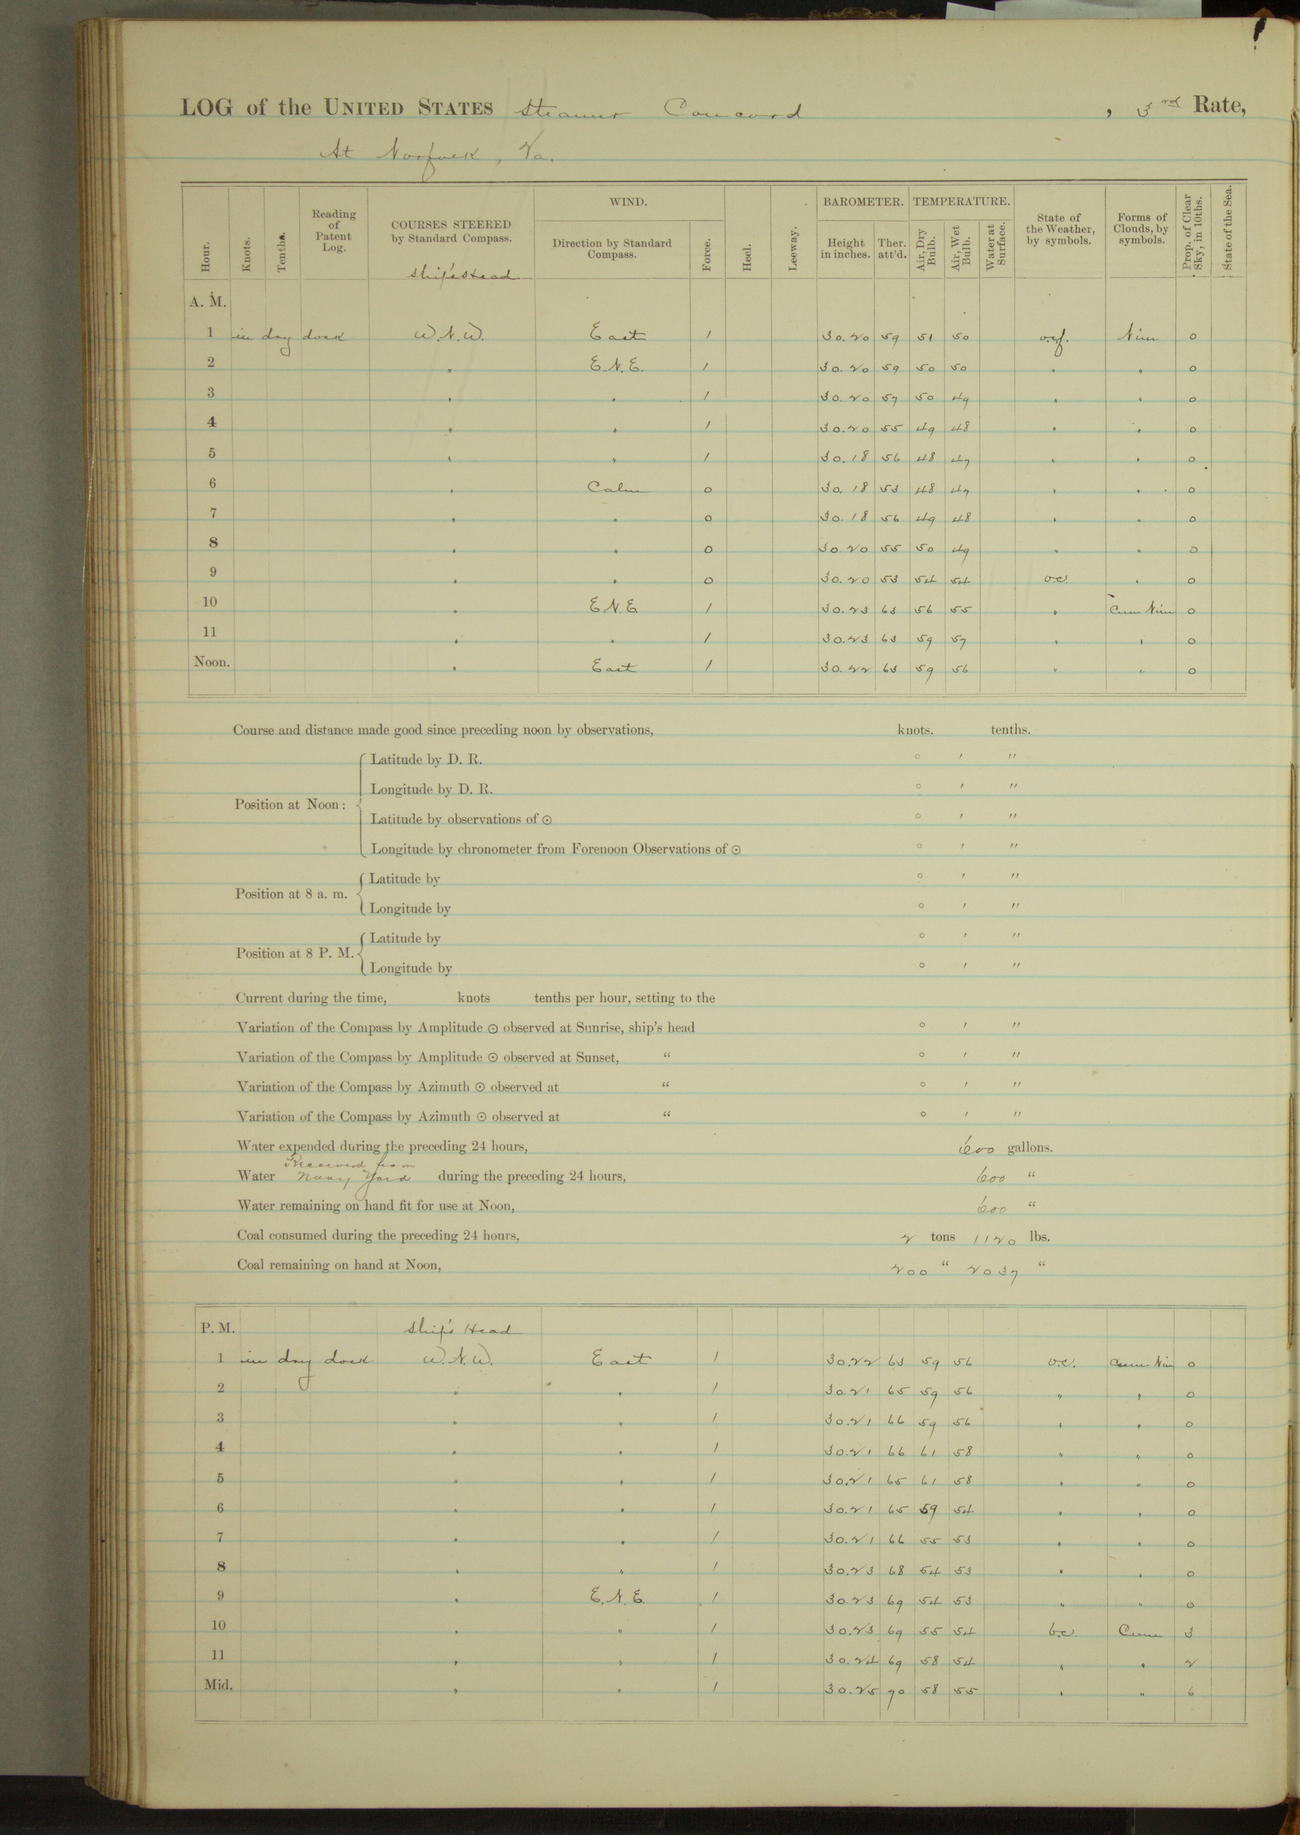 LOG of the UNITED STATES Steamer Concord , 3rd Rate,
At Norfolk, Va.
Hour. Knots. Tenths. Reading of Patent Log. COURSES STEERED by Standard Compass. WIND. Direction by Standard Compass. Force. Heel. Leeway. BAROMETER. Height in inches. Ther. att'd. TEMPERATURE. Air, Dry Bulb. Air, Wet Bulb. Water at Surface. State of the Weather, by symbols. Forms of Clouds, by symbols. Prop. of Clear Sky, in 10ths. State of the Sea.
Ship's Head
A. M.
1 in dry dock W.N.W. East 1 30.20 59 51 50 o.c.f. Nim 0
2 " E.N.E. 1 30.20 59 50 50 " " 0
3 " " 1 30.20 57 50 49 " " 0
4 " " 1 30.20 55 49 48 " " 0
5 " " 1 30.18 56 48 47 " " 0
6 " Calm 0 30.18 53 48 47 " " 0
7 " " 0 30.18 56 49 48 " " 0
8 " " 0 30.20 55 50 49 " " 0
9 " " 0 30.20 53 54 54 o.c. " 0
10 " E.N.E 1 30.23 63 56 55 " Cum Nim 0
11 " " 1 30.23 63 59 57 " " 0
Noon. " East 1 30.22 63 59 56 " " 0
Course and distance made good since preceding noon by observations, knots. tenths.
Latitude by D. R. ° ′ ″
Longitude by D. R. ° ′ ″
Position at Noon:
Latitude by observations of ⊙ ° ′ ″
Longitude by chronometer from Forenoon Observations of ⊙ ° ′ ″
Latitude by ° ′ ″
Position at 8 a. m.
Longitude by ° ′ ″
Latitude by ° ′ ″
Position at 8 P. M.
Longitude by ° ′ ″
Current during the time, knots tenths per hour, setting to the
Variation of the Compass by Amplitude ⊙ observed at Sunrise, ship's head ° ′ ″
Variation of the Compass by Amplitude ⊙ observed at Sunset, “ ° ′ ″
Variation of the Compass by Azimuth ⊙ observed at “ ° ′ ″
Variation of the Compass by Azimuth ⊙ observed at “ ° ′ ″
Water expended during the preceding 24 hours, 600 gallons.
Received from
Water Navy Yard during the preceding 24 hours, 600 “
Water remaining on hand fit for use at Noon, 600 “
Coal consumed during the preceding 24 hours, 2 tons 1120 lbs.
Coal remaining on hand at Noon, 200 “ 2037 “
P. M. Ship's Head
1 in dry dock W.N.W. East 1 30.22 63 59 56 o.c. Cum-Nim 0
2 " " 1 30.21 65 59 56 " " 0
3 " " 1 30.21 66 59 56 " " 0
4 " " 1 30.21 66 61 58 " " 0
5 " " 1 30.21 65 61 58 " " 0
6 " " 1 30.21 65 59 54 " " 0
7 " " 1 30.21 66 55 53 " " 0
8 " " 1 30.23 68 54 53 " " 0
9 " E.N.E. 1 30.23 69 54 53 " " 0
10 " " 1 30.23 69 55 54 b.c. Cum 3
11 " " 1 30.24 69 58 54 " " 2
Mid. " " 1 30.25 70 58 55 " " 6